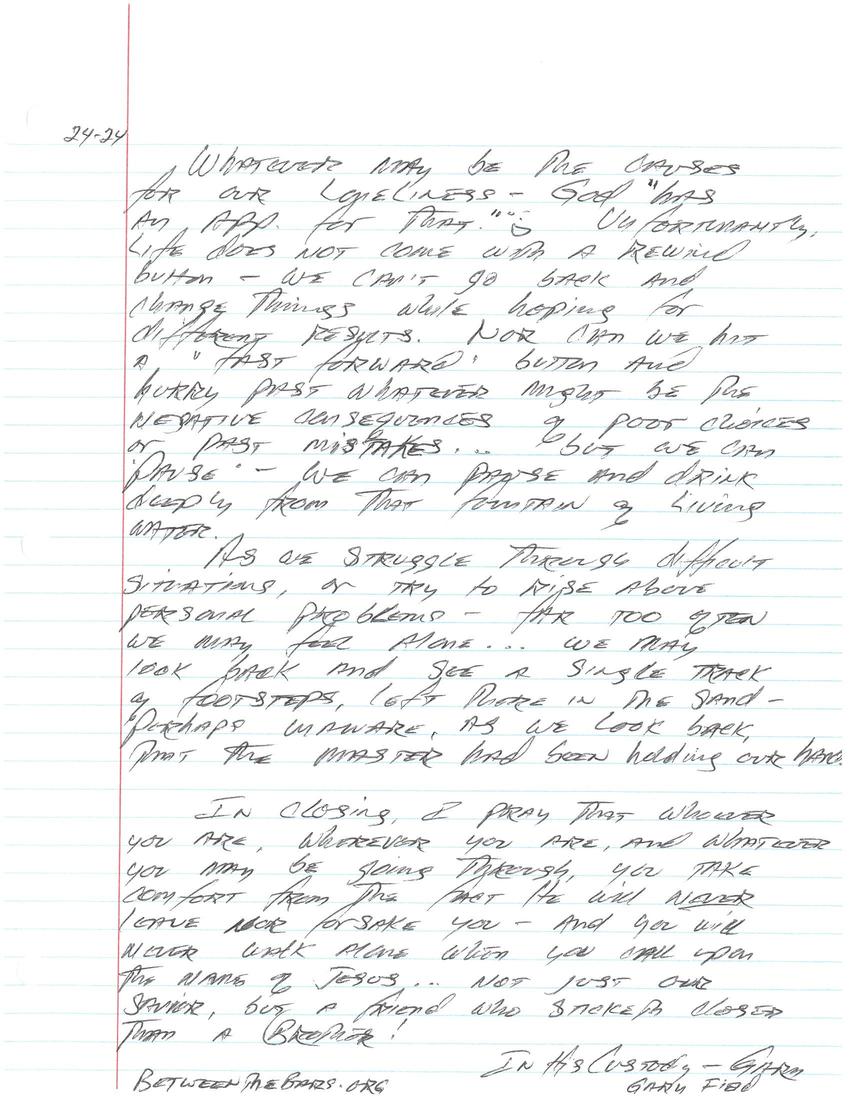 24-24
Whatever may be the causes
for our loneliness - God "has
an app. for that."
Unfortunantly,
life does not come with a rewind
button - we can't go back and
change things while hoping for
different results. Nor can we hit
a "fast forward" button and
hurry past whatever might be the
negative consequences of poor choices
or past mistakes... but we can
"pause" - we can pause and drink
deeply from that fountain of living
water.
As we struggle through difficult
situations, or try to rise above
personal problems - far too often
we may feel alone... we may
look back and see a single track
of footsteps, left there in the sand -
perhaps unaware, as we look back,
that the master had been holding our hand.
In closing, I pray that whoever
you are, wherever you are, and whatever
you may be going through, you take
comfort from the fact He will never
leave nor forsake you - and you will
never walk alone when you call upon
the name of Jesus... not just our
Savior, but a friend who sticketh closer
than a Brother!
In His Custody - Gary
BetweenTheBars.org
Gary Field